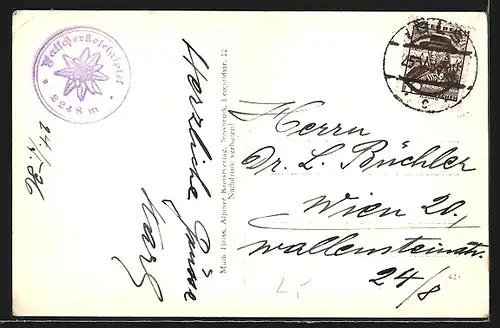 Patscherkofelgipfel
2248 m
24./I. 36
Herzliche Grüsse
Karl
Much Heiss, Alpiner Kunstverlag, Innsbruck, Leopoldstr. 12
Nachdruck verboten!
Herrn
Dr. L. Büchler
Wien 20,
Wallensteinstr.
24/8